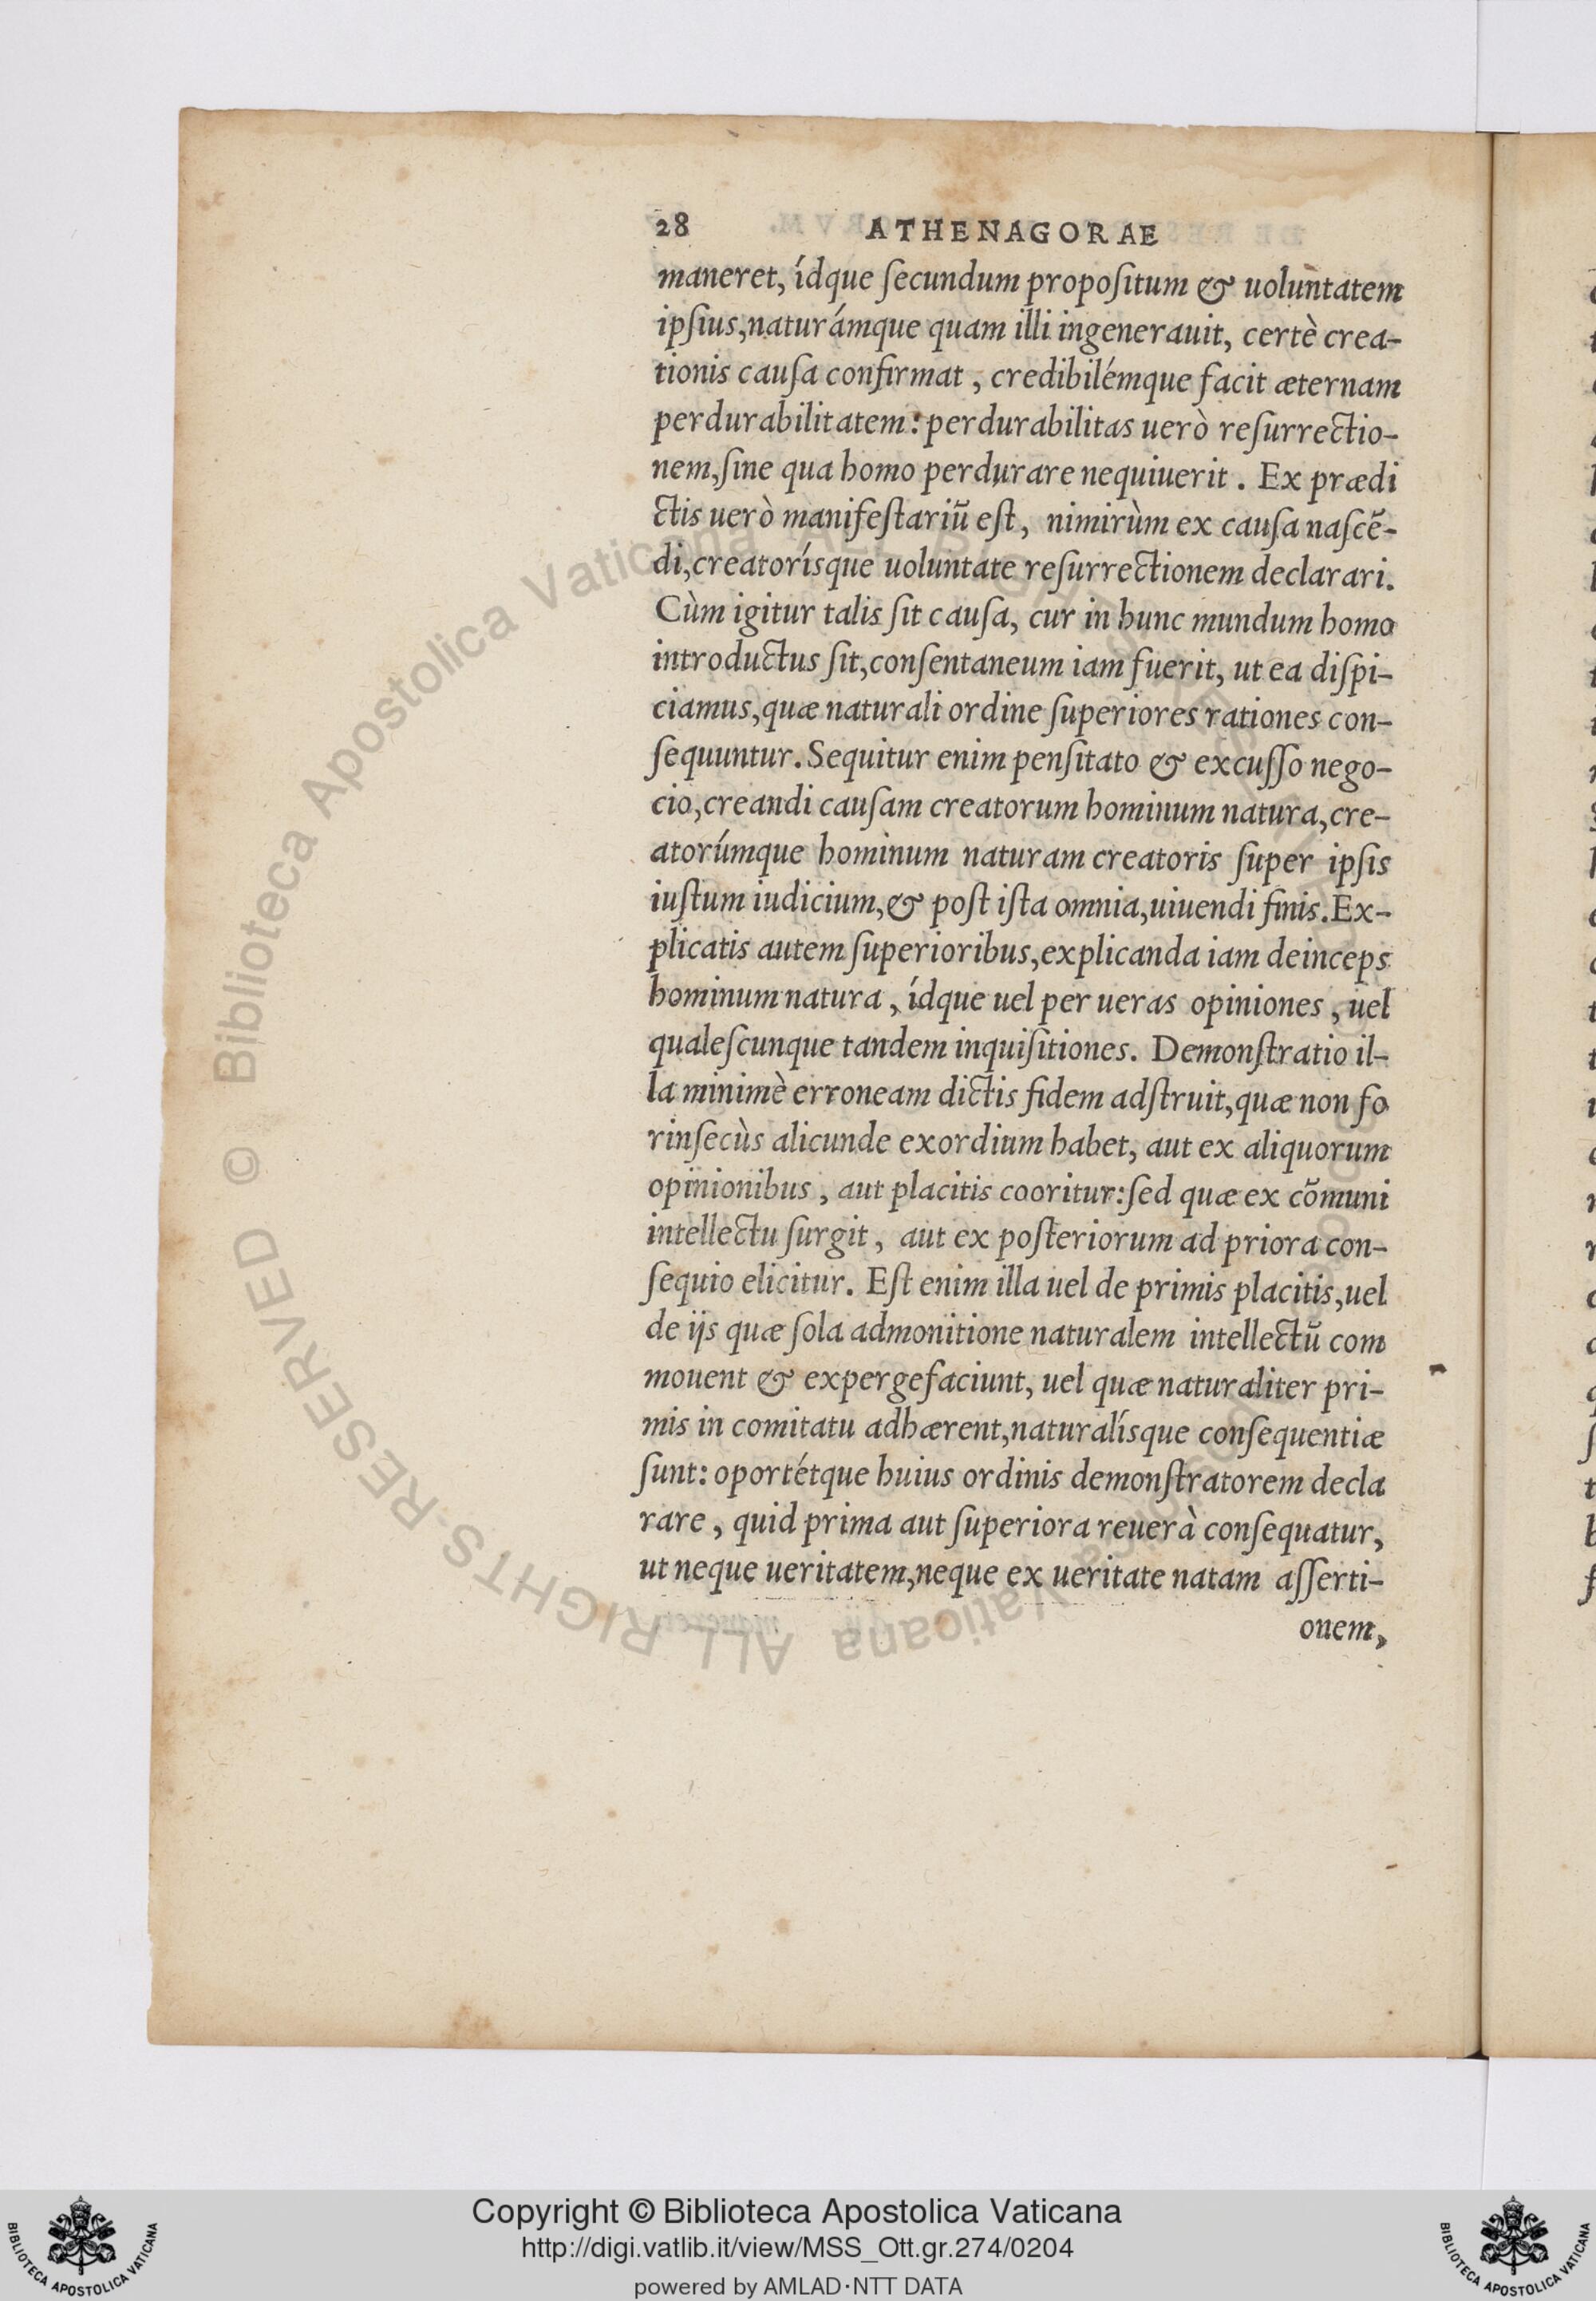 28 ATHENAGORAE
maneret, ídque ſecundum propoſitum & uoluntatem
ipſius,naturámque quam illi ingenerauit, certè crea-
tionis cauſa confirmat, credibilémque facit æternam
perdurabilitatem: perdurabilitas uerò reſurrectio-
nem,ſine qua homo perdurare nequiuerit. Ex prædi
ctis uerò manifeſtariũ eſt, nimirùm ex cauſa naſcẽ-
di,creatorísque uoluntate reſurrectionem declarari.
Cùm igitur talis ſit cauſa, cur in hunc mundum homo
introductus ſit,conſentaneum iam fuerit, ut ea diſpi-
ciamus,quæ naturali ordine ſuperiores rationes con-
ſequuntur.Sequitur enim penſitato & excuſſo nego-
cio,creandi cauſam creatorum hominum natura,cre-
atorúmque hominum naturam creatoris ſuper ipſis
iuſtum iudicium,& poſt iſta omnia,uiuendi finis.Ex-
plicatis autem ſuperioribus,explicanda iam deinceps
hominum natura, ídque uel per ueras opiniones, uel
qualeſcunque tandem inquiſitiones. Demonſtratio il-
la minimè erroneam dictis fidem adſtruit,quæ non fo
rinſecùs alicunde exordium habet, aut ex aliquorum
opinionibus, aut placitis cooritur:ſed quæ ex cõmuni
intellectu ſurgit, aut ex poſteriorum ad priora con-
ſequio elicitur. Eſt enim illa uel de primis placitis,uel
de ijs quæ ſola admonitione naturalem intellectũ com
mouent & expergefaciunt, uel quæ naturaliter pri-
mis in comitatu adhærent,naturalísque conſequentiæ
ſunt: oportétque huius ordinis demonſtratorem decla
rare, quid prima aut ſuperiora reuerà conſequatur,
ut neque ueritatem,neque ex ueritate natam aſſerti-
onem,
Copyright © Biblioteca Apostolica Vaticana
http://digi.vatlib.it/view/MSS_Ott.gr.274/0204
powered by AMLAD·NTT DATA
BIBLIOTECA APOSTOLICA VATICANA
BIBLIOTECA APOSTOLICA VATICANA
© Biblioteca Apostolica Vaticana ALL RIGHTS RESERVED